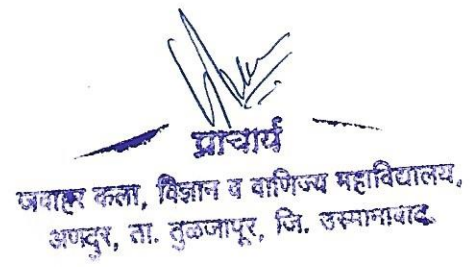 प्राचार्य
जवाहर कला, विज्ञान व वाणिज्य महाविद्यालय,
अणदुर, ता. तुळजापूर, जि. उस्मानाबाद.